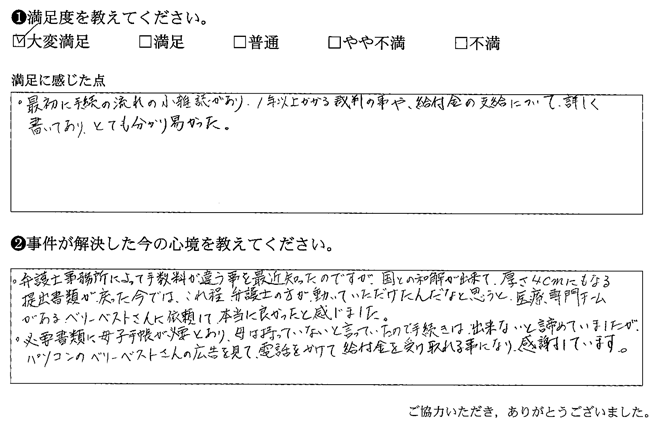 ❶満足度を教えてください。
☑大変満足 □満足 □普通 □やや不満 □不満
満足に感じた点
。最初に手続の流れの小雑誌があり、1年以上かかる裁判の事や、給付金の支給について、詳しく
書いてあり、とても分かり易かった。
❷事件が解決した今の心境を教えてください。
。弁護士事務所によって手数料が違う事を最近知ったのですが、国との和解が出来て、厚さ4cmにもなる
提出書類が戻った今では、これ程弁護士の方が動いていただけたんだなと思うと、医療専門チーム
があるベリーベストさんに依頼して本当に良かったと感じました。
。必要書類に母子手帳が必要とあり、母は持っていないと言っていたので手続きは、出来ないと諦めていましたが、
パソコンのベリーベストさんの広告を見て、電話をかけて給付金を受け取れる事になり、感謝しています。
ご協力いただき，ありがとうございました。